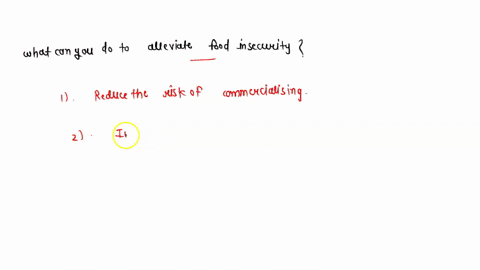 what can you do to alleviate food insecurity ?
1). Reduce the risk of commercialising.
2). In